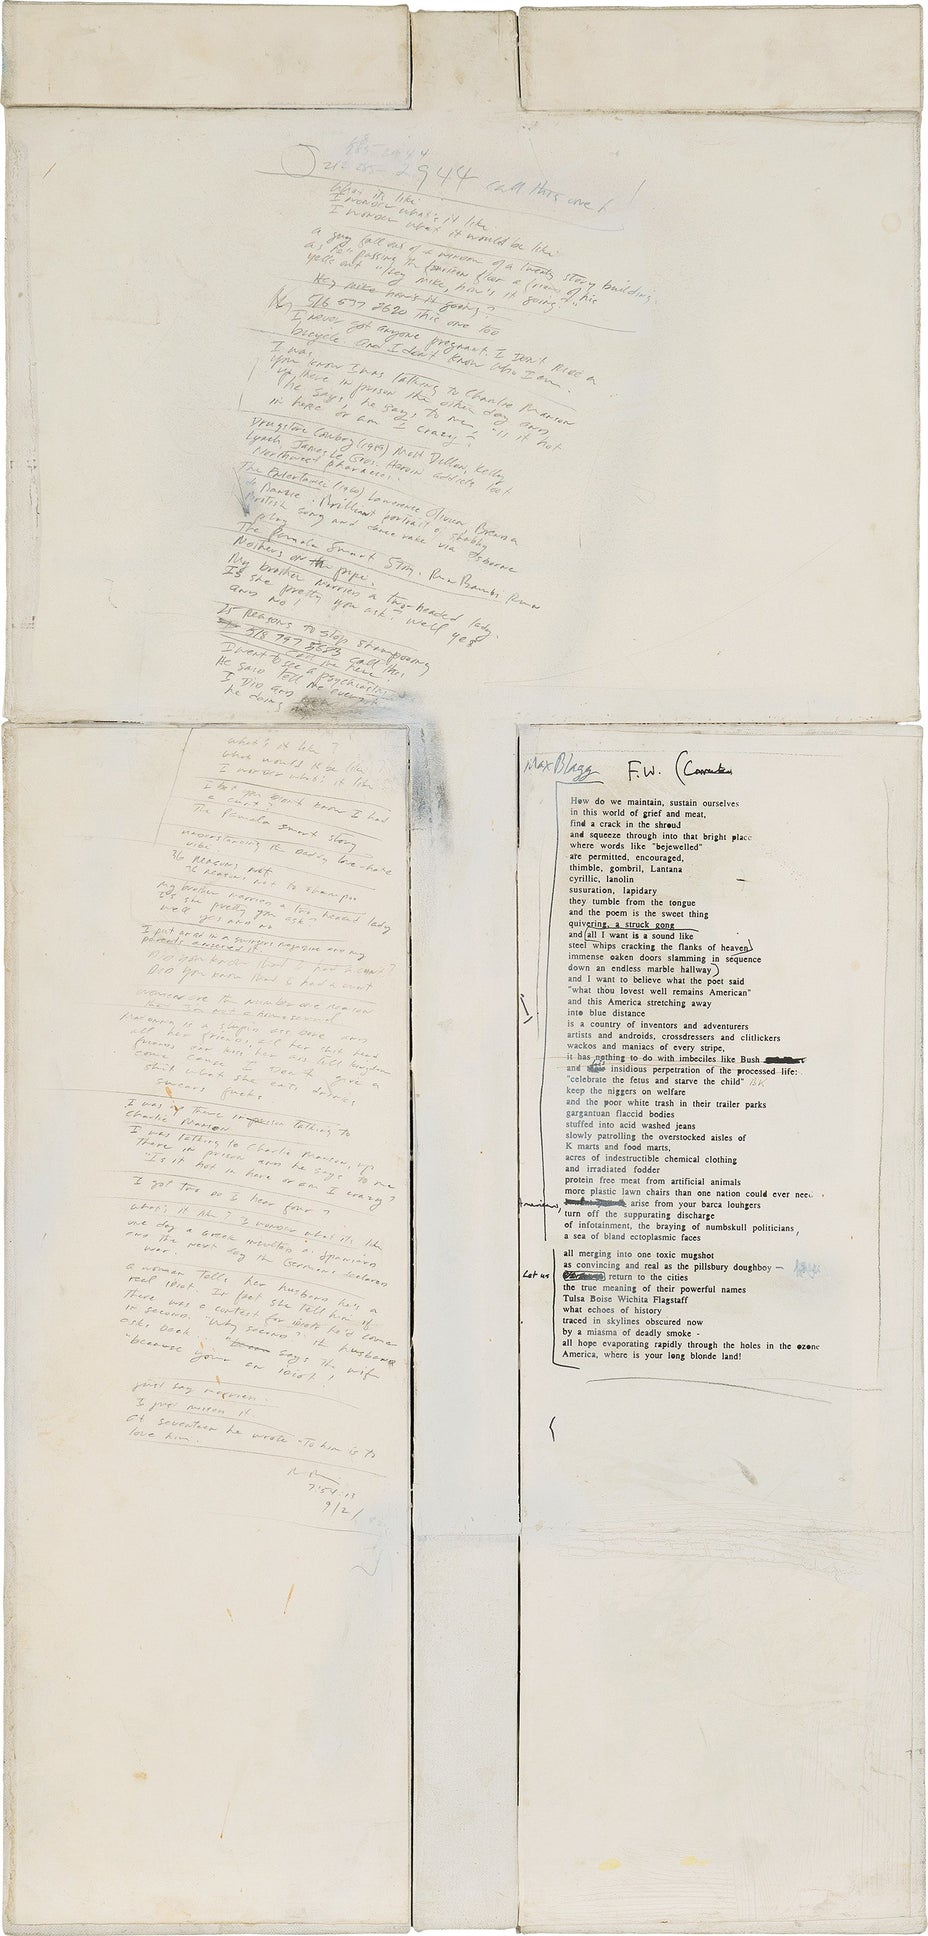 2944 call this one!
What it's like
I wonder what's it like
I wonder what it would be like
a guy fall out of a window of a twenty story building.
as he's passing the fourteen floor a friend of his
yells out "hey mike, how's it going?"
Hey mike how's it going?
516 537 2620 This one too
I never got anyone pregnant. I don't ride a
bicycle and I don't know who I am.
I was
you know I was talking to Charlie Manson
up there in prison the other day and
he says, he says to me, is it hot
in here or am I crazy?
Drugstore Cowboy (1989) Matt Dillon, Kelly
Lynch, James Le Gros. Heroin addicts loot
Northwest pharmacies.
The Entertainer (1960) Laurence Olivier, Brenda
de Banzie. Brilliant portrait of shabby
British song and dance via Osborne
play
The Pamela Smart Story. Run Bambi Run
Mothers on the pipe.
My brother married a two-headed lady.
Is she pretty you ask? Well yes
and no!
15 reasons to stop shampooing
518 797 3583 call this
call me here
I went to see a psychiatrist
He said tell me everything
I did and
he doing
what's it like?
what would it be like?
I wonder what's it like
I bet you didn't know I had
a cunt?
The Pamela Smart story
understanding the daddy love-hate
vibe
36 reasons not
36 reasons not to shampoo
My brother married a two headed lady
Is she pretty you ask?
well yes and no
I put an ad in a swingers magazine and my
parents answered it.
Did you know that I had a cunt?
Did you know that I had a cunt
women are the number one reason
Madonna is a stupid ass bore and
all her friends, all her shit head
friends can kiss her ass to kingdom
come cause I don't give a
shit what she eats, drinks
swears fucks
I was up there in prison talking to
Charlie Manson
I was talking to Charlie Manson, up
there in prison and he says to me
"Is it hot in here or am I crazy?
I got two do I hear four?
what's it like? I wonder what it's like
one day a Greek insulted a Spaniard
and the next day the Germans declared
war.
a woman tells her husband he's a
real idiot. In fact she tell him if
there was a contest for idiots he'd come
in second. "Why second?" the husband
asks back. says the wife
"because your an idiot!
just say
I just
At seventeen he wrote - To him is to
love him.
7:54:13
9/2/
Max Blagg F.W. (
How do we maintain, sustain ourselves
in this world of grief and meat,
find a crack in the shroud
and squeeze through into that bright place
where words like "bejewelled"
are permitted, encouraged,
thimble, gombril, Lantana
cyrillic, lanolin
susuration, lapidary
they tumble from the tongue
and the poem is the sweet thing
quivering, a struck gong
and (all I want is a sound like
steel whips cracking the flanks of heaven)
immense oaken doors slamming in sequence
down an endless marble hallway)
and I want to believe what the poet said
"what thou lovest well remains American"
and this America stretching away
into blue distance
is a country of inventors and adventurers
artists and androids, crossdressers and clitlickers
wackos and maniacs of every stripe,
it has nothing to do with imbeciles like Bush
and his insidious perpetration of the processed life:
"celebrate the fetus and starve the child" BK
keep the niggers on welfare
and the poor white trash in their trailer parks
gargantuan flaccid bodies
stuffed into acid washed jeans
slowly patrolling the overstocked aisles of
K marts and food marts,
acres of indestructible chemical clothing
and irradiated fodder
protein free meat from artificial animals
more plastic lawn chairs than one nation could ever need.
Americans, arise from your barca loungers
turn off the suppurating discharge
of infotainment, the braying of numbskull politicians,
a sea of bland ectoplasmic faces
all merging into one toxic mugshot
as convincing and real as the pillsbury doughboy —
Let us return to the cities
the true meaning of their powerful names
Tulsa Boise Wichita Flagstaff
what echoes of history
traced in skylines obscured now
by a miasma of deadly smoke -
all hope evaporating rapidly through the holes in the ozone
America, where is your long blonde land!